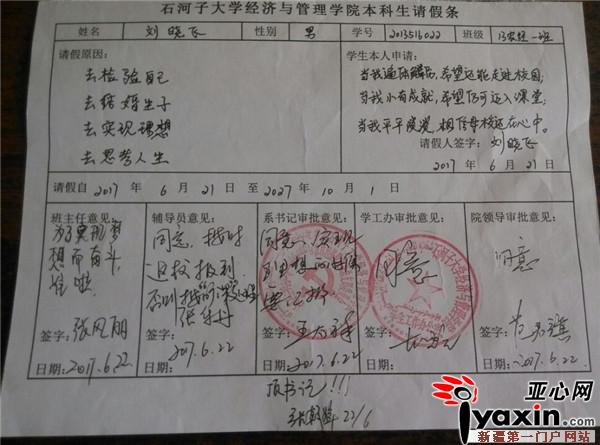 石河子大学经济与管理学院本科生请假条
姓名 刘晓飞 性别 男 学号 2013516022 班级 一班
请假原因:
去检验自己
去结婚生子
去实现理想
去思考人生
学生本人申请:
当我遍体鳞伤,希望还能走进校园;
当我小有成就,希望仍可迈入课堂;
当我平平庸庸,相信母校还在心中。
请假人签字: 刘晓飞
2017 年 6 月 21 日
请假自 2017 年 6 月 21 日 至 2027 年 10 月 1 日
班主任意见:
梦
想而奋斗
准啦
签字:
日期: 2017.6.22
辅导员意见:
同意,按时
返校报到
否则按
签字:
日期: 2017.6.22
系书记审批意见:
同意,实现
理想
签字:
日期: 2017.6.22
学工办审批意见:
同意
签字:
日期:
院领导审批意见:
同意
签字:
日期: 2017.6.22
顶书记!!!
22/6
亚心网
iyaxin.com
新疆第一门户网站